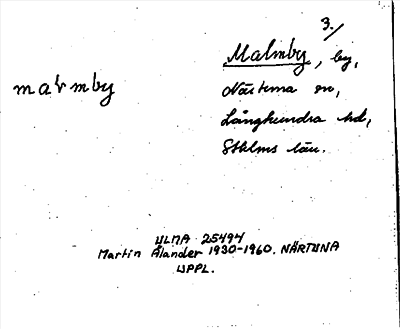 3./
Malmby, by,
marmby
Närtuna sn,
Långhundra hd,
Sthlms län.
ULMA 25494
Martin Ålander 1930-1960. NÄRTUNA
UPPL.